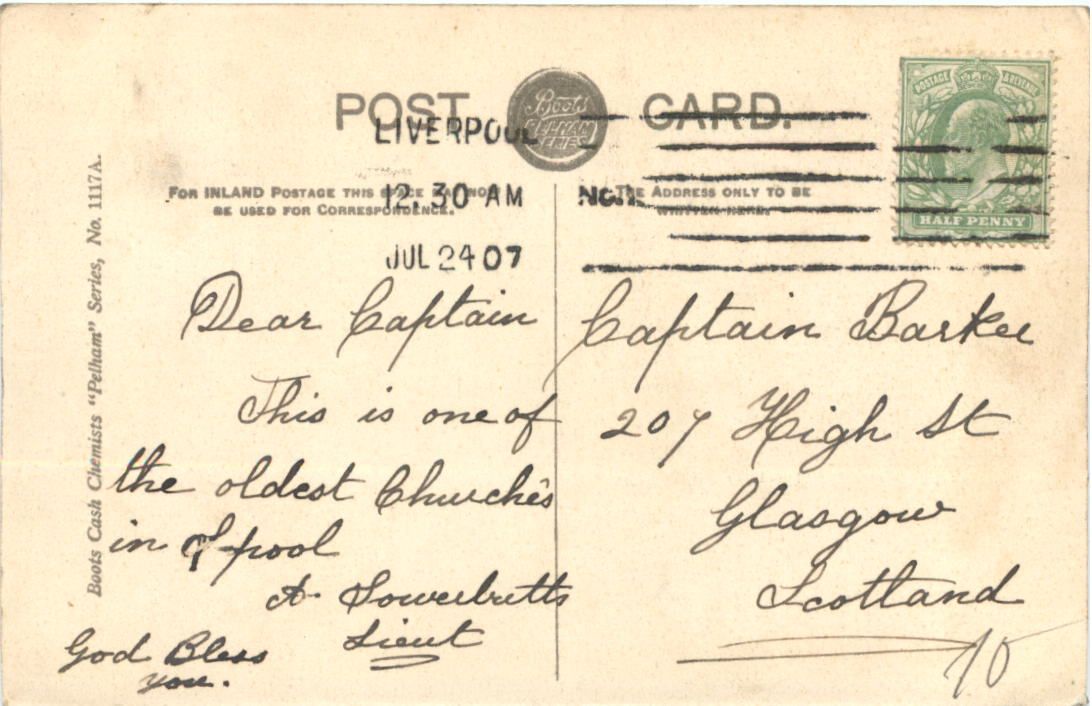 POST CARD.
Boots
PELHAM
SERIES
POSTAGE & REVENUE
HALF PENNY
LIVERPOOL
12.30 AM
JUL 24 07
FOR INLAND POSTAGE THIS SPACE MAY NOW
BE USED FOR CORRESPONDENCE.
THE ADDRESS ONLY TO BE
WRITTEN HERE.
Boots Cash Chemists "Pelham" Series, No. 1117A.
Dear Captain
This is one of
the oldest Churches
in L-pool
A. Sowerbutts
Lieut
God Bless
you.
Captain Barker
207 High St
Glasgow
Scotland
10